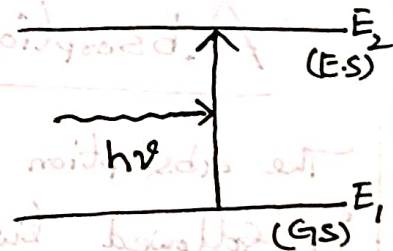 E₂
(E.S)
hν
E₁
(GS)